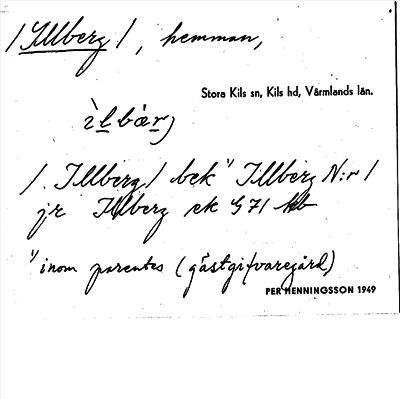 /Illberg/, hemman,
Stora Kils sn, Kils hd, Värmlands län.
ìlbærj
/. Illberg/ bek ¹⁾ Illberg N:r 1
jr Illberg ek G 71
¹⁾ inom parentes (gästgifvaregård)
PER HENNINGSSON 1949